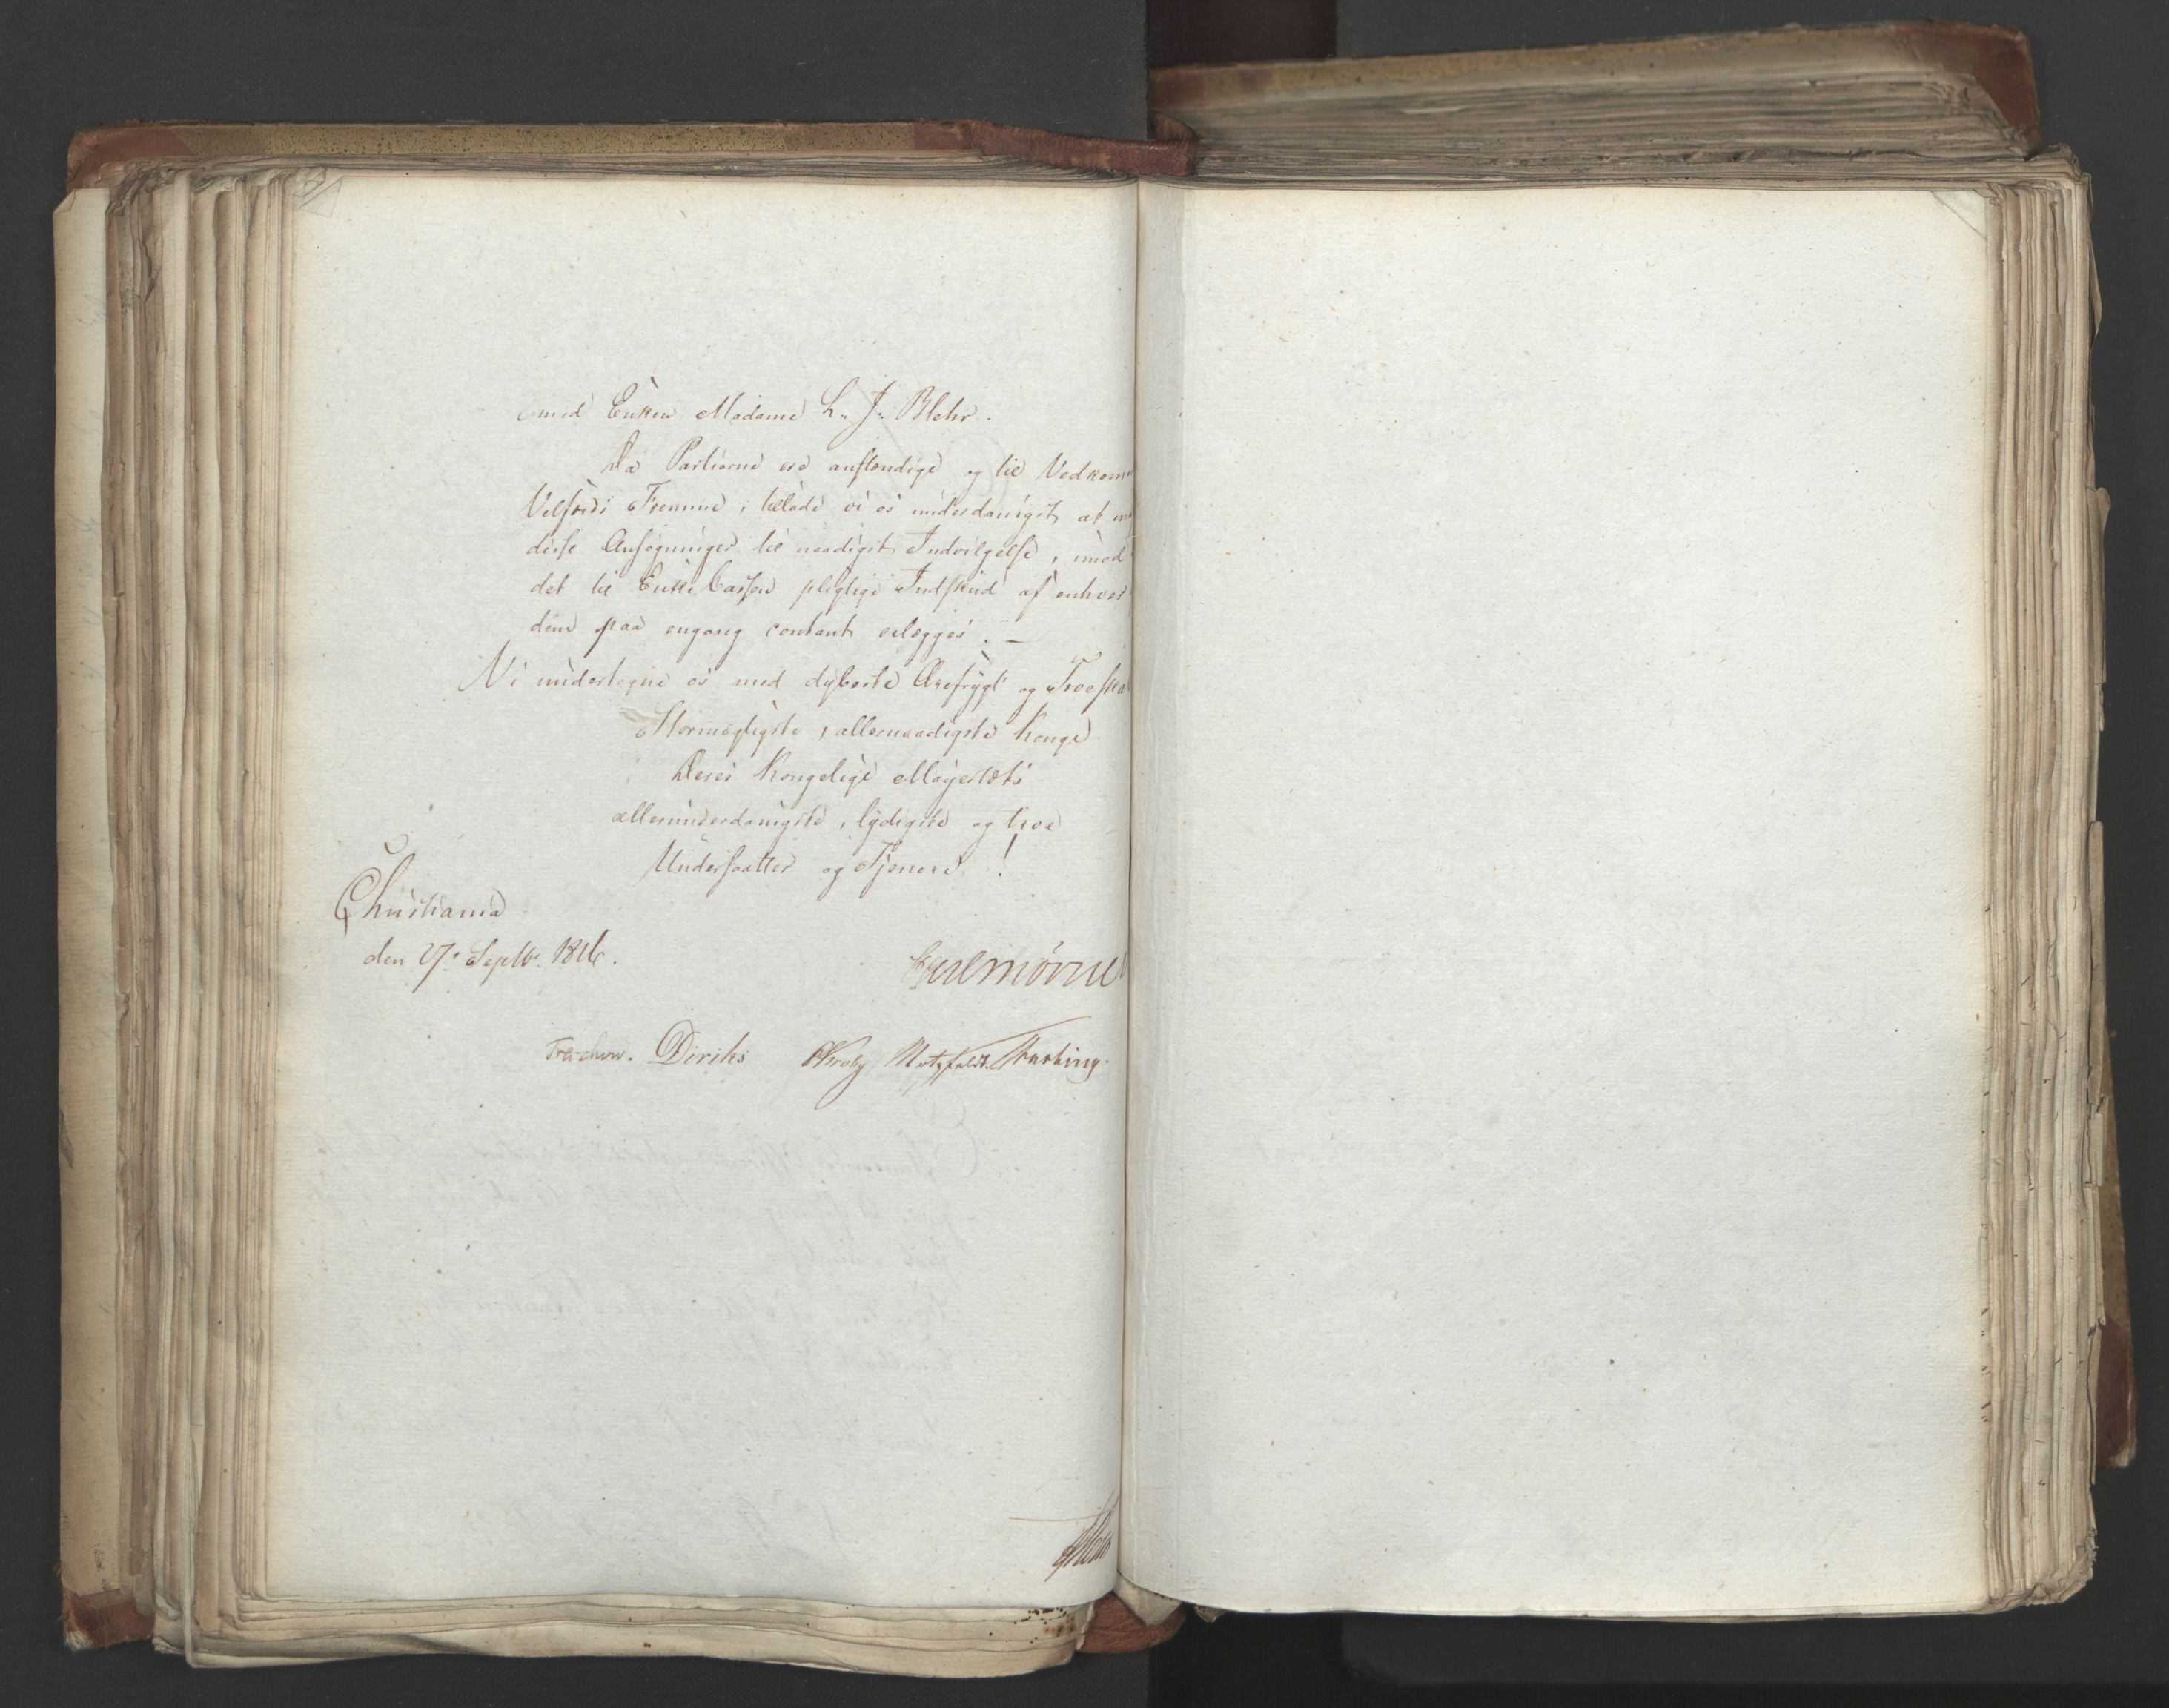 med Enken Madame L. J. Blehr.
Da Partierne ere anstændige og til Vedkom
Velfærds Fremme, tillade vi os underdanigst at
disse Ansøgninger til naadigst Indvilgelse, imod
det til Enke Cassen pligtige Indskud af enhver
dem paa engang contant erlægges. —
Vi undertegne os med dybeste Ærefrygt og Troeska
Stormægtigste, allernaadigste Konge
Deres Kongelige Majestæts
allerunderdanigste, lydigste og troe
Undersaatter og Tjenere!
Christiania
den 27. Septbr. 1816.
Mörner
Treschow. Diriks Krog Motzfeldt. Hasting.